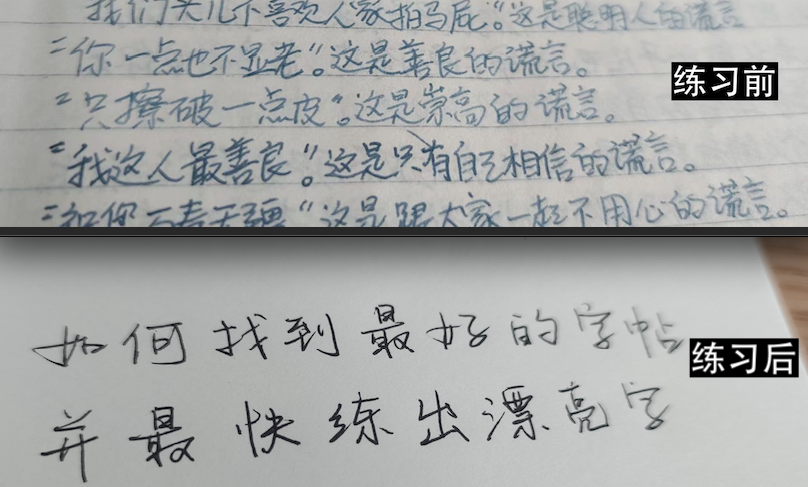 我们头儿不喜欢人家拍马屁”。这是聪明人的谎言
“你一点也不显老”。这是善良的谎言。
练习前
“只擦破一点皮”。这是崇高的谎言。
“我这人最善良”。这是只有自己相信的谎言。
“祝你万寿无疆”这是跟大家一起不用心的谎言。
如何找到最好的字帖
练习后
并最快练出漂亮字